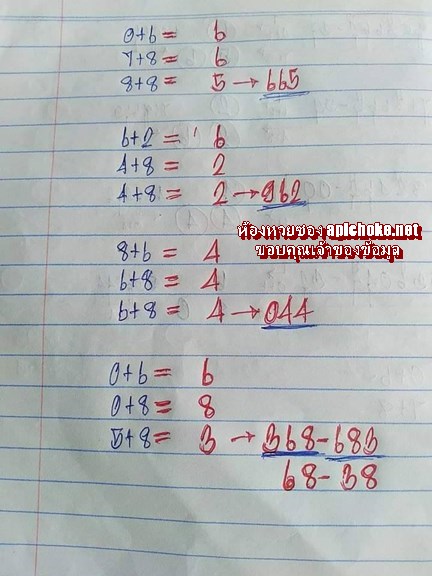 0+6= 6
7+8= 6
8+8= 5→665
6+2= 6
4+8= 2
4+8= 2→962
ห้องหวยซอง apichoke.net
ขอบคุณเจ้าของข้อมูล
8+6= 4
6+8= 4
6+8= 4→044
0+6= 6
0+8= 8
5+8= 3→368-683
68-38